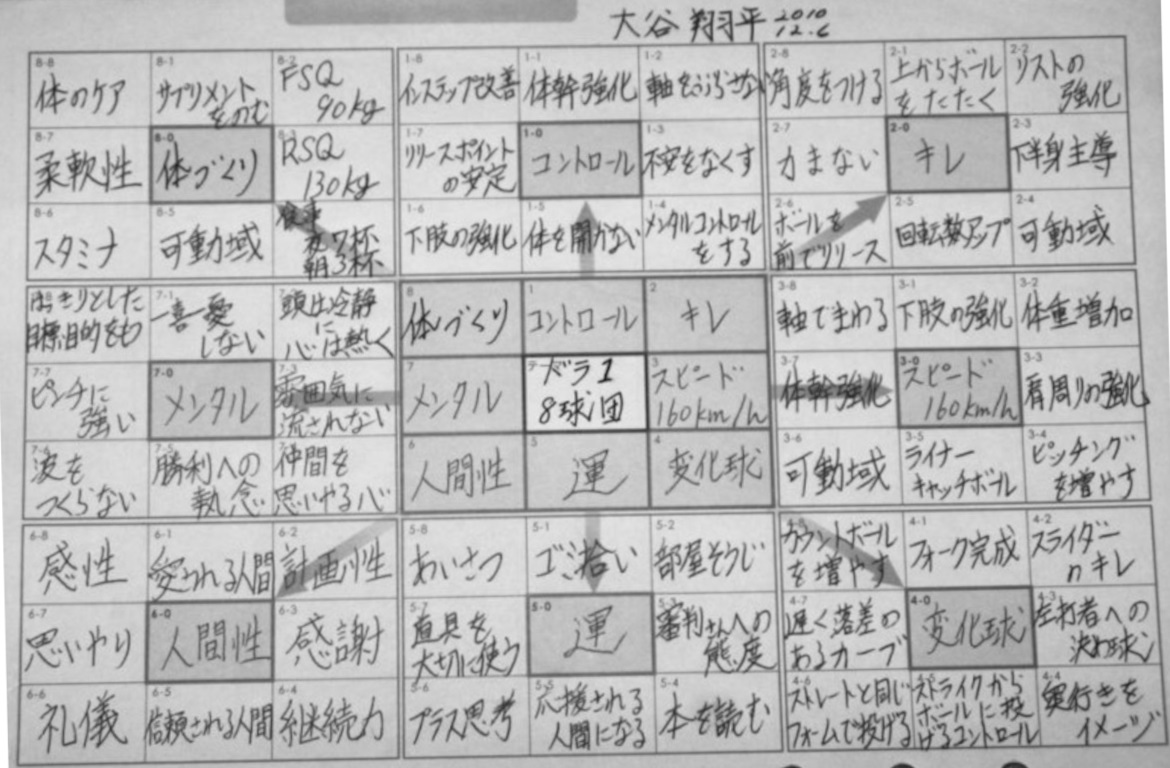 大谷 翔平 2010
12.6
8-8
体のケア
8-1
サプリメント
をのむ
8-2
FSQ
90kg
8-7
柔軟性
8-0
体づくり
8-3
RSQ
130kg
8-6
スタミナ
8-5
可動域
食事
夜7杯
朝3杯
1-8
インステップ改善
1-1
体幹強化
1-2
軸をぶらさない
1-7
リリースポイント
の安定
1-0
コントロール
1-3
不安をなくす
1-6
下肢の強化
1-5
体を開かない
1-4
メンタルコントロール
をする
2-8
角度をつける
2-1
上からボール
をたたく
2-2
リストの
強化
2-7
力まない
2-0
キレ
2-3
下半身主導
2-6
ボールを
前でリリース
2-5
回転数アップ
2-4
可動域
はっきりとした
目標、目的をもつ
7-1
一喜一憂
しない
頭は冷静
に
心は熱く
7-7
ピンチに
強い
7-0
メンタル
7-3
雰囲気に
流されない
7-6
波を
つくらない
7-5
勝利への
執念
仲間を
思いやる心
8
体づくり
1
コントロール
2
キレ
7
メンタル
ドラ1
8球団
3
スピード
160km/h
6
人間性
5
運
4
変化球
3-8
軸でまわる
3-1
下肢の強化
3-2
体重増加
3-7
体幹強化
3-0
スピード
160km/h
3-3
肩周りの強化
3-6
可動域
3-5
ライナー
キャッチボール
3-4
ピッチング
を増やす
6-8
感性
6-1
愛される人間
6-2
計画性
6-7
思いやり
人間性
6-3
感謝
6-6
礼儀
6-5
信頼される人間
6-4
継続力
5-8
あいさつ
5-1
ゴミ拾い
5-2
部屋そうじ
5-7
道具を
大切に使う
5-0
運
5-3
審判さんへの
態度
5-6
プラス思考
5-5
応援される
人間になる
5-4
本を読む
4-8
カウントボール
を増やす
4-1
フォーク完成
4-2
スライダー
のキレ
4-7
遅く落差の
あるカーブ
4-0
変化球
4-3
左打者への
決め球
4-6
ストレートと同じ
フォームで投げる
4-5
ストライクから
ボールに投
げるコントロール
4-4
奥行きを
イメージ